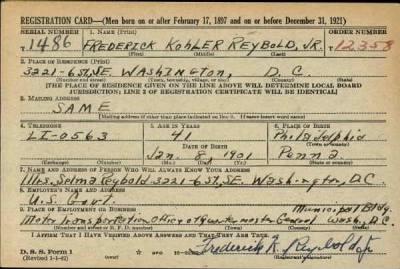 REGISTRATION CARD—(Men born on or after February 17, 1897 and on or before December 31, 1921)
SERIAL NUMBER 1. NAME (Print) ORDER NUMBER
T1486 FREDERICK KOHLER REYBOLD, JR. T12358
2. PLACE OF RESIDENCE (Print)
3221-6 ST, SE. WASHINGTON, D. C.
(Number and street) (Town, township, village, or city) (County) (State)
[THE PLACE OF RESIDENCE GIVEN ON THE LINE ABOVE WILL DETERMINE LOCAL BOARD
JURISDICTION; LINE 2 OF REGISTRATION CERTIFICATE WILL BE IDENTICAL]
3. MAILING ADDRESS
SAME
[Mailing address if other than place indicated on line 2. If same insert word same]
4. TELEPHONE 5. AGE IN YEARS 6. PLACE OF BIRTH
LI-0563 41 Philadelphia
DATE OF BIRTH (Town or county)
Jan. 8 1901 Penna
(Exchange) (Number) (Mo.) (Day) (Yr.) (State or country)
7. NAME AND ADDRESS OF PERSON WHO WILL ALWAYS KNOW YOUR ADDRESS
Mrs. Selma Reybold 3221-6 ST, SE. Washington, D.C.
8. EMPLOYER'S NAME AND ADDRESS
U.S. Govt.
9. PLACE OF EMPLOYMENT OR BUSINESS Municipal Bldg.
Motor Transportation Office of Quartermaster General Wash., D.C.
(Number and street or R. F. D. number) (Town) (County) (State)
I AFFIRM THAT I HAVE VERIFIED ABOVE ANSWERS AND THAT THEY ARE TRUE.
D. S. S. Form 1 Frederick K. Reybold Jr.